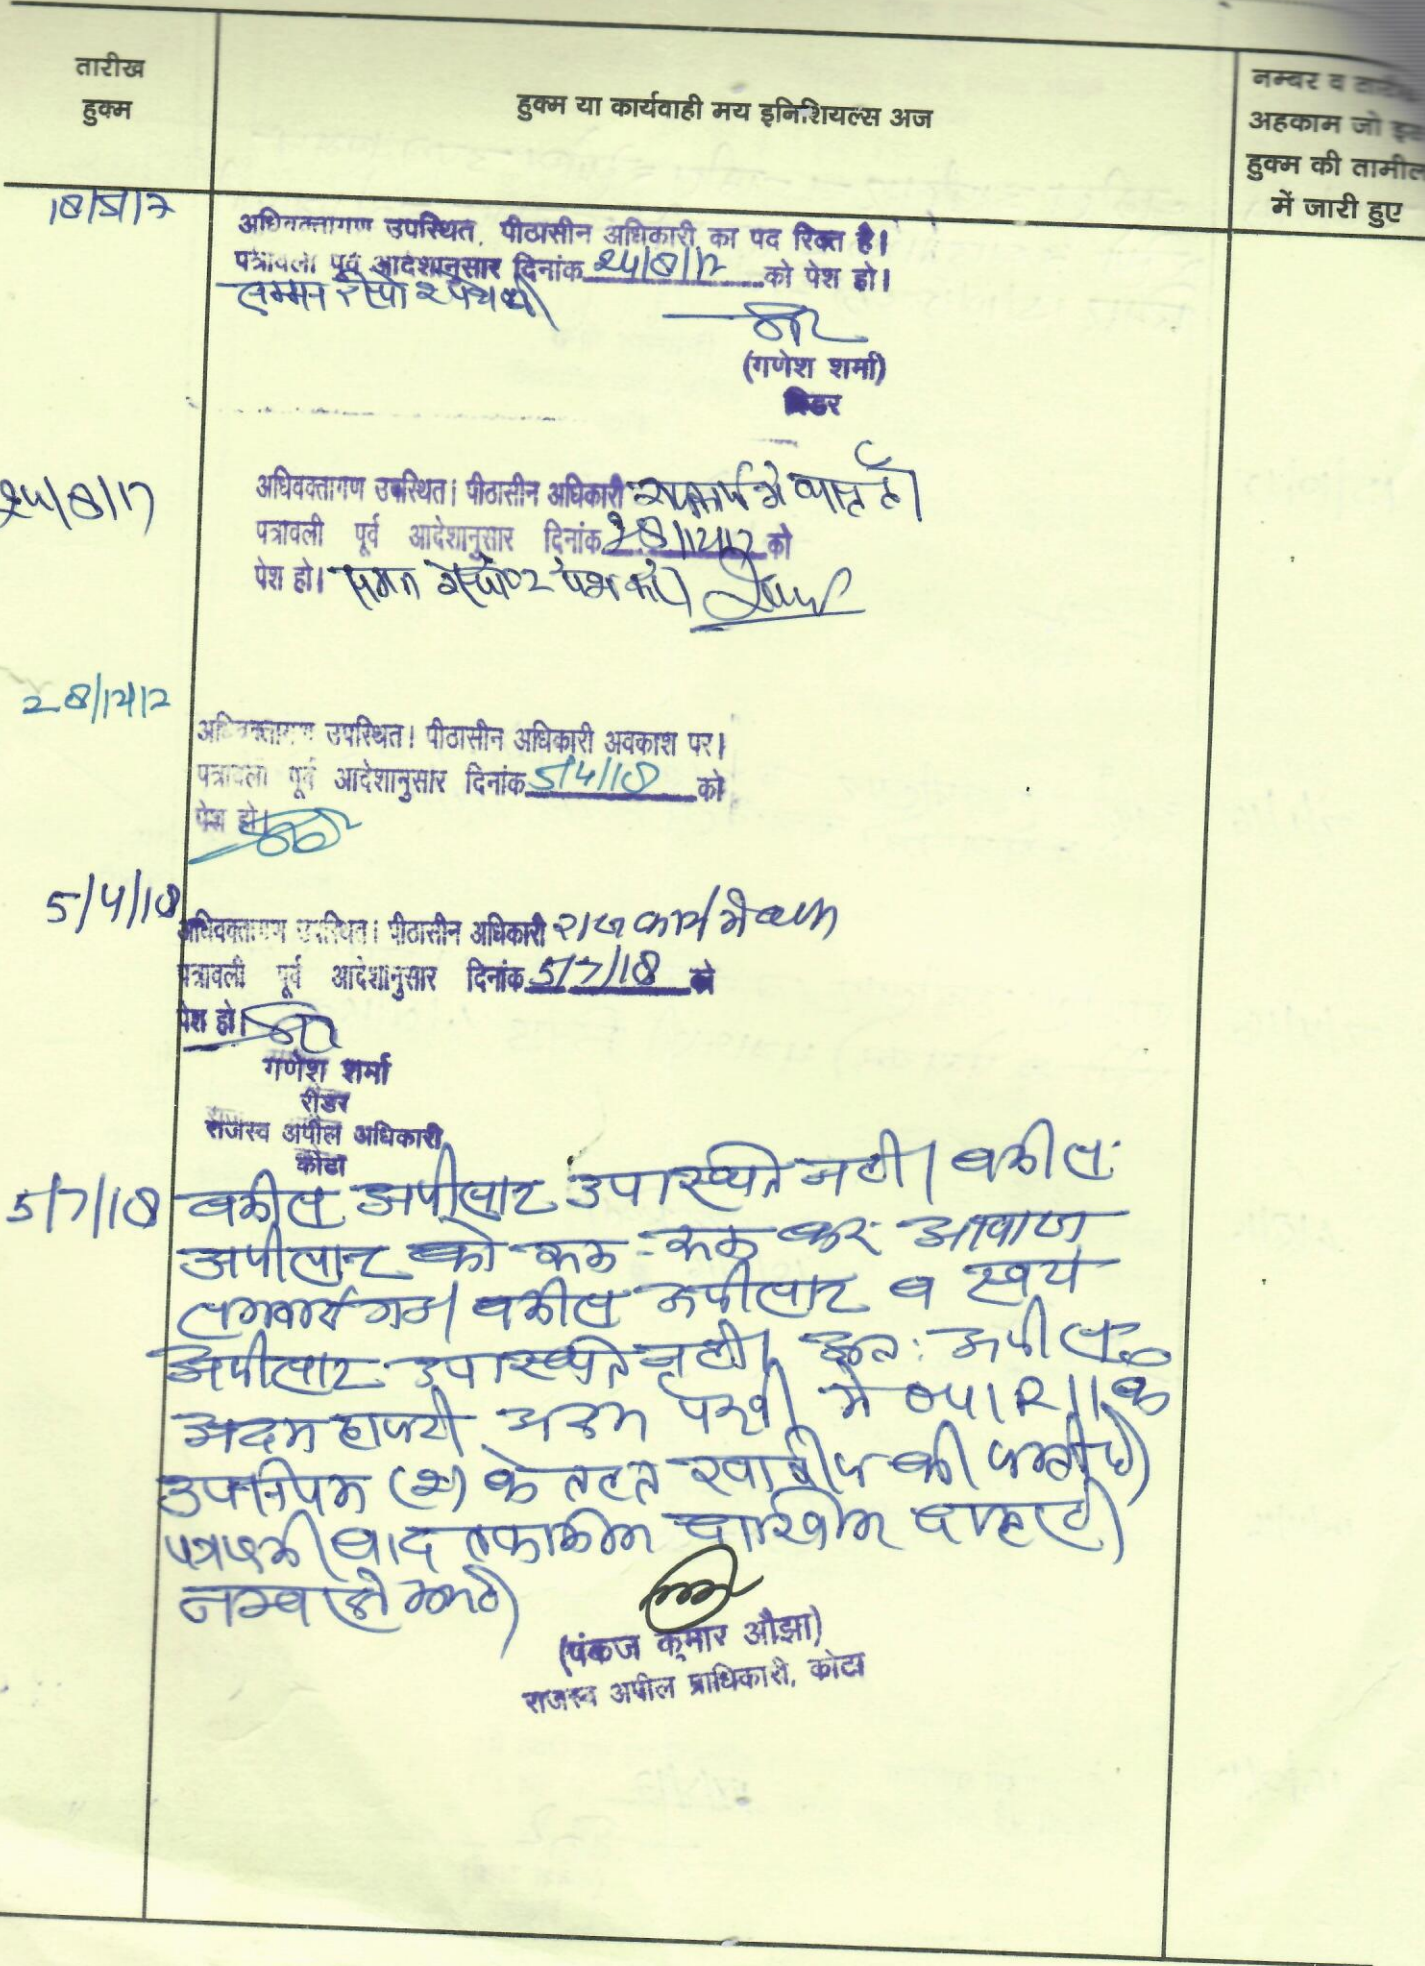 तारीख
हुक्म
हुक्म या कार्यवाही मय इनिशियल्स अज
नम्बर व
अहकाम जो इस
हुक्म की तामील
में जारी हुए
18/5/17
अधिवक्तागण उपस्थित, पीठासीन अधिकारी का पद रिक्त है।
पत्रावली पूर्व आदेशानुसार दिनांक 24/8/17 को पेश हो।
(गणेश शर्मा)
रिडर
24/8/17
अधिवक्तागण उपस्थित। पीठासीन अधिकारी
पत्रावली पूर्व आदेशानुसार दिनांक 28/12/17 को
पेश हो।
28/12/17
अधिवक्तागण उपस्थित। पीठासीन अधिकारी अवकाश पर।
पत्रावली पूर्व आदेशानुसार दिनांक 5/4/18 को
पेश हो।
5/4/18
अधिवक्तागण उपस्थित। पीठासीन अधिकारी राज कार्य में व्यस्त
पत्रावली पूर्व आदेशानुसार दिनांक 5/7/18 को
पेश हो।
गणेश शर्मा
रीडर
राजस्व अपील अधिकारी
कोटा
5/7/18
वकील अपीलांट उपस्थित नहीं। वकील
अपीलान्ट को कर आवाज
वकील अपीलांट व स्वयं
अपीलांट उपस्थित नहीं। अतः अपील
अदम हाजरी अदम पैरवी में
उपनियम के तहत खारीज की जाती है।
पत्रावली बाद
(पंकज कुमार औझा)
राजस्व अपील प्राधिकारी, कोटा